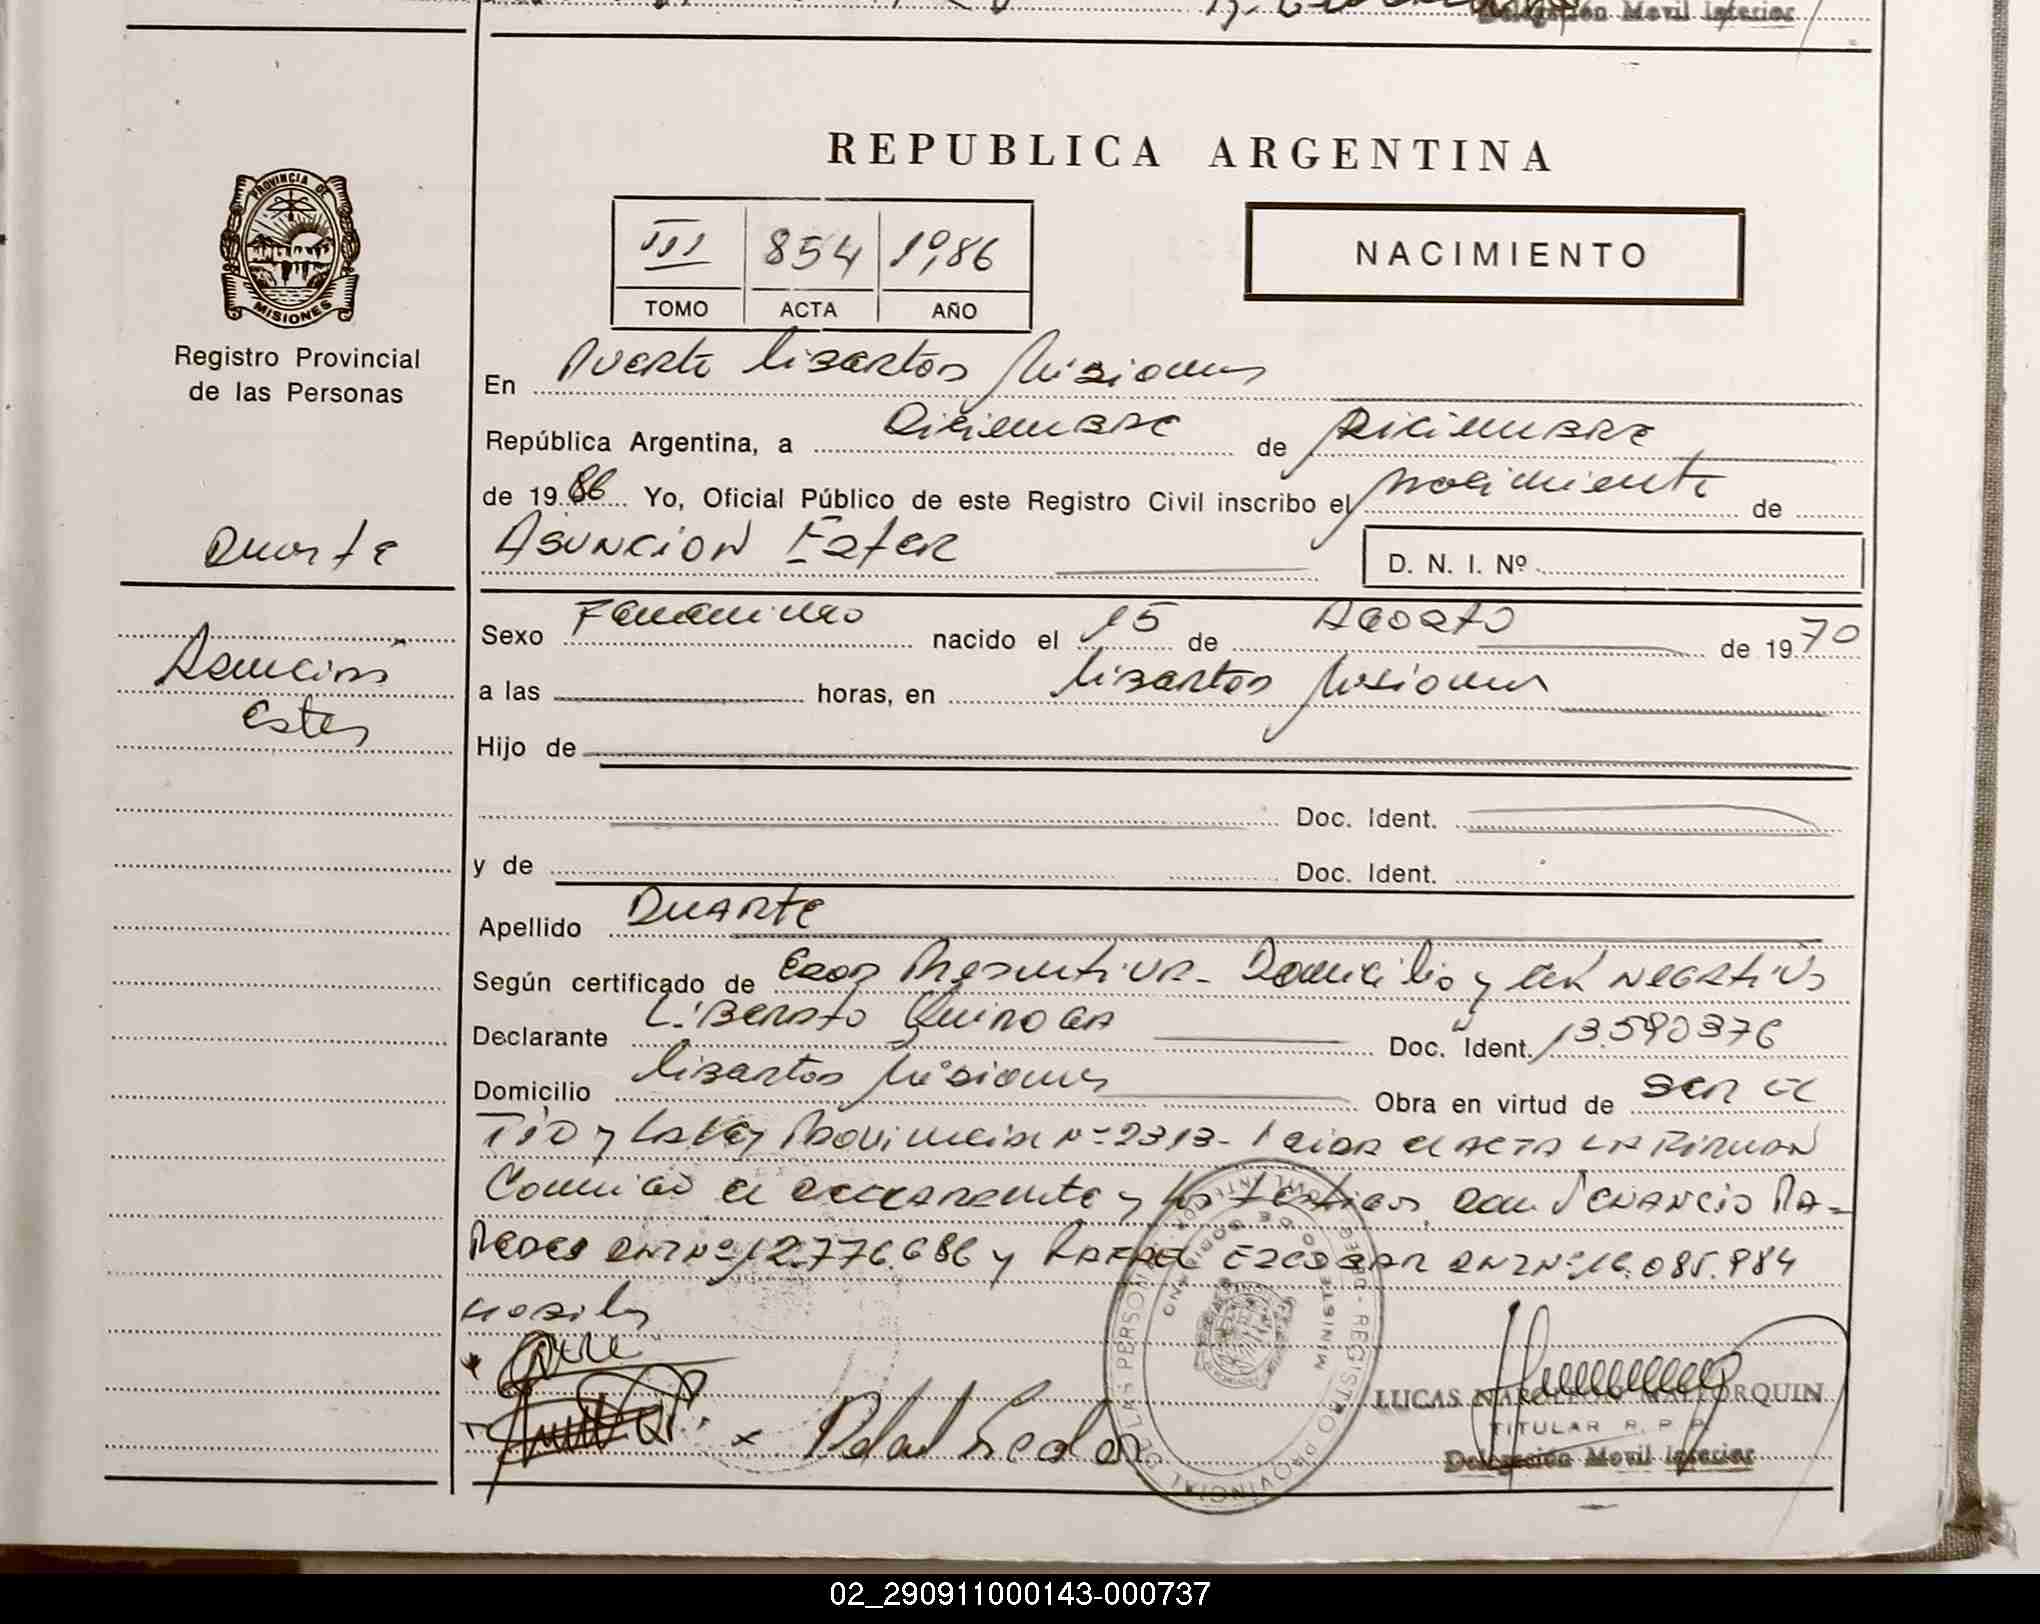 Delegación Movil Interior
REPUBLICA ARGENTINA
PROVINCIA DE
MISIONES
Registro Provincial
de las Personas
III 854 1986
TOMO ACTA AÑO
NACIMIENTO
En Puerto Libertad Misiones
República Argentina, a Diciembre de Diciembre
de 19 86 Yo, Oficial Público de este Registro Civil inscribo el nacimiento de
Duarte
Asuncion Ester
D. N. I. Nº
Asuncion
Ester
Sexo Femenino nacido el 15 de Agosto de 19 70
a las horas, en Libertad Misiones
Hijo de
Doc. Ident.
y de Doc. Ident.
Apellido Duarte
Según certificado de Edad Presuntiva - Domicilio y Negativo
Declarante Liberato Quiroga Doc. Ident. 13.590376
Domicilio Libertad Misiones Obra en virtud de ser el
Tio y la Ley Provincial Nº 2313 - Leida el acta la firman
Conmigo el declarante y los testigos, don Venancio Pa-
redes DNI Nº 12.776.686 y Rafael Escobar DNI Nº 16.085.984
LUCAS NAPOLEON MALLORQUIN
TITULAR R. P. P.
Delegación Movil Interior
REGISTRO PROVINCIAL DE LAS PERSONAS
MINISTERIO DE GOBIERNO
02_290911000143-000737